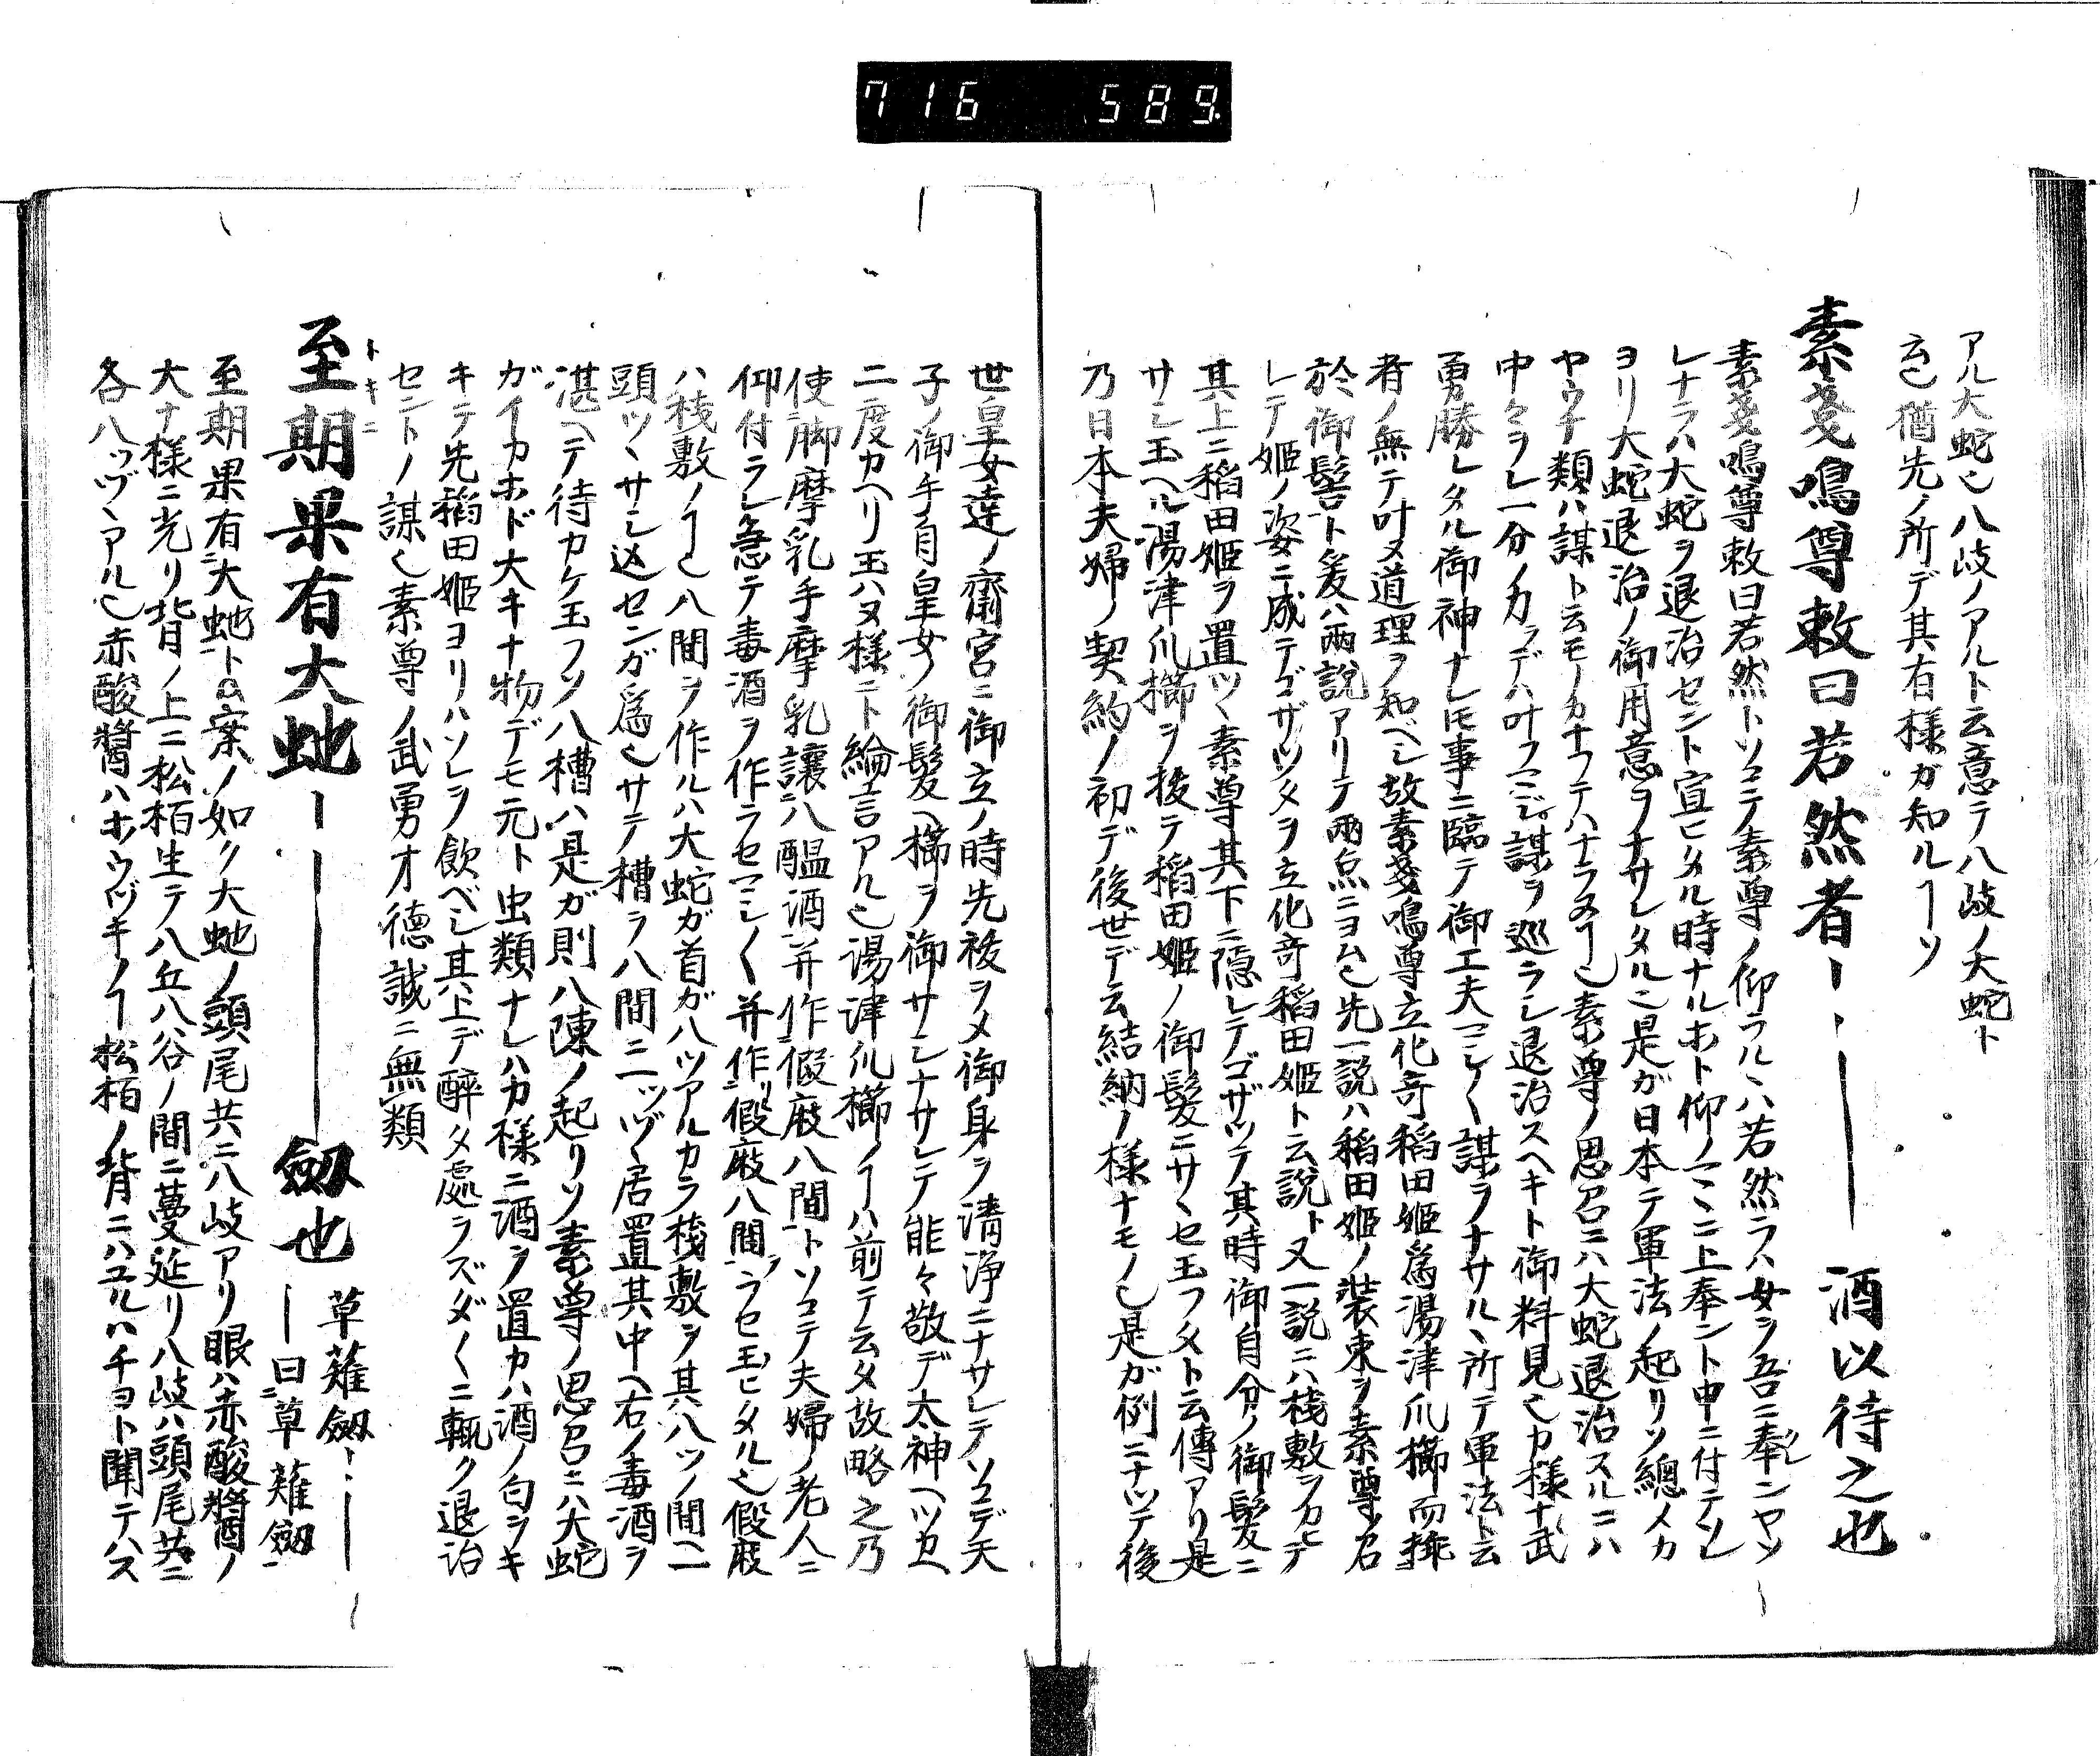 716 589.
アル大蛇也八岐ノアルト云意テ八岐ノ大蛇ト
云也猶先ノ所デ其有様ガ知ルヿソ
素戔嗚尊敕曰若然者ーーー酒以待之也
素戔嗚尊敕曰若然トソコテ素尊ノ仰ラルヽハ若然ラハ女ヲ吾ニ奉ンヤソ
レナラハ大蛇ヲ退治セント宣ヒタル時ナルホト仰ノマヽニ上奉ント申ニ付テソレ
ヨリ大蛇退治ノ御用意ヲナサレタル也是が日本テ軍法ノ起リソ總メカ
ヤウナ類ハ謀ト云モノカナフテハナラヌヿ也素尊ノ思召ニハ大蛇退治スルニハ
中々ヲレ一分ノ力ラデハ叶フマジ謀ヲ巡ラシ退治スヘキト御料見也カ様ナ武
勇勝レタル御神ナレ𪜈事ニ臨テ御工夫マシ〱謀ヲナサルヽ所テ軍法ト云
者ノ無テ叶ヌ道理ヲ知ベシ故素戔嗚尊立化奇稻田姫爲湯津爪櫛而挿
於御髻ト爰ハ兩説アリテ兩点ニヨム也先一説ハ稻田姫ノ裝束ヲ素尊召
レテ姫ノ姿ニ成テゴザツタヲ立化奇稻田姫ト云説ト又一説ニハ棧敷ヲカヒテ
其上ニ稻田姫ヲ置ツヽ素尊其下ニ隱レテゴザツテ其時御自分ノ御髮ニ
サシ玉ヘル湯津爪櫛ヲ拔テ稻田姫ノ御髮ニサヽセ玉フタト云傳アリ是
乃日本夫婦ノ契約ノ初デ後世デ云結納ノ様ナモノ也是が例ニナツテ後
世皇女達ノ齋宮ニ御立ノ時先祓ヲメ御身ヲ清浄ニナサレテソコデ天
子ノ御手自皇女ノ御髮ヘ櫛ヲ御サシナサレテ能々敬デ太神ヘツカヘ
二度カヘリ玉ハヌ様ニト綸言アル也湯津爪櫛ノヿハ前テ云タ故略之乃
使脚摩乳手摩乳讓八醞酒并作假庪八間トソコテ夫婦ノ老人ニ
仰付ラレ急テ毒酒ヲ作ラセマシ〱并作リ假庪八間ヲラセ玉ヒタル也假庪
ハ棧敷ノヿ也八間ヲ作ルハ大蛇ガ首ガ八ツアルカラ棧敷ヲ其八ツノ間ヘ一
頭ツヽサシ込センガ爲也サテ槽ヲ八間ニ一ツヅヽ居置其中ヘ右ノ毒酒ヲ
湛ヘテ待カケ玉フソ八槽ハ是ガ則八陳ノ起リソ素尊ノ思召ニハ大蛇
ガイカホド大キナ物デモ元ト虫類ナレハカ様ニ酒ヲ置カハ酒ノ匂ヲキ
キテ先稻田姫ヨリハソレヲ飲ベシ其上デ醉タ處ヲズダ〱ニ輙ク退治
セントノ謀也素尊ノ武勇才德誠ニ無類
至期果有大虵ーーー劔也 草薙劔ーーー
ー曰草薙劔
トキニ
至期果有大虵ト案ノ如ク大虵ノ頭尾共ニ八岐アリ眼ハ赤酸醬ノ
大ナ様ニ光リ背ノ上ニ松栢生テ八丘八谷ノ間ニ蔓延リ八岐ハ頭尾共ニ
各八ツヅヽアル也赤酸醬ハホウヅキノヿ松栢ノ背ニハユルハチヨト聞テハス